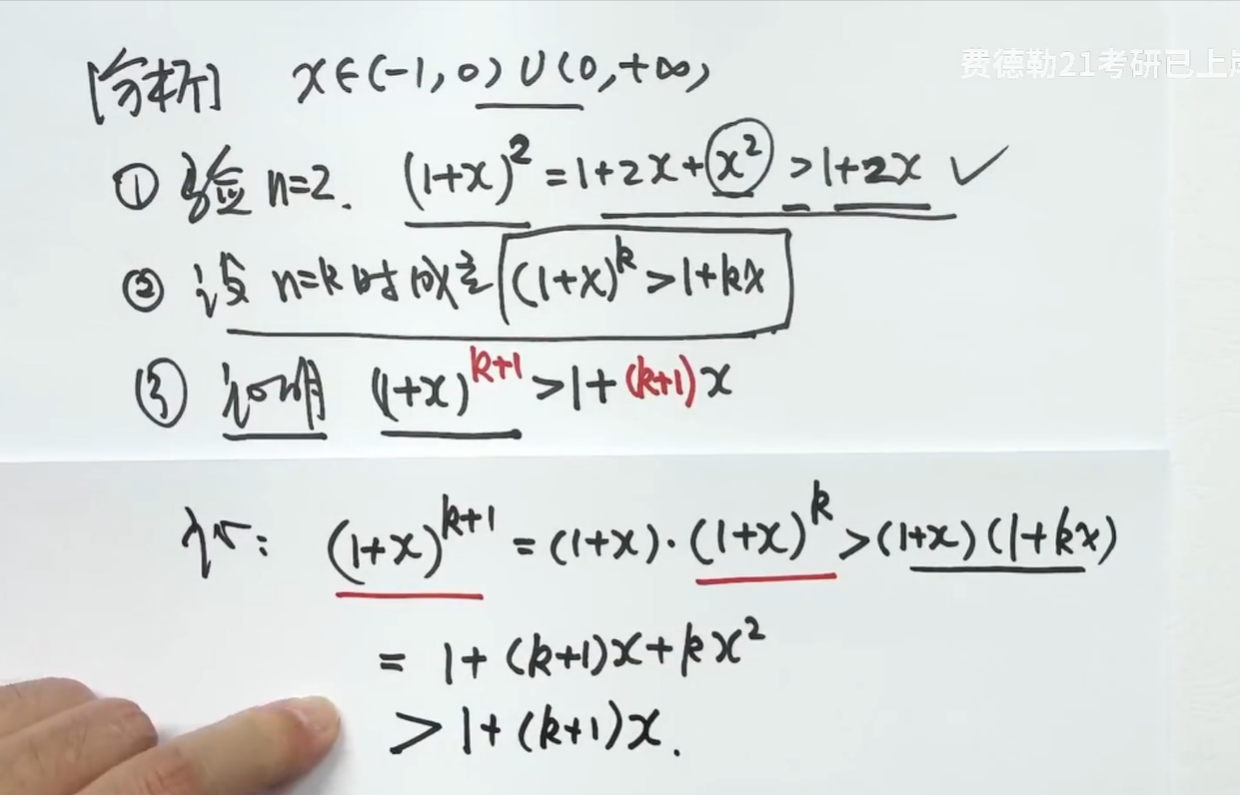 费德勒21考研已上岸
[分析] x∈(-1,0)∪(0,+∞)
① 验 n=2. (1+x)²=1+2x+x²>1+2x ✓
② 设 n=k 时成立 (1+x)^k>1+kx
③ 证明 (1+x)^{k+1}>1+(k+1)x
(1+x)^{k+1}=(1+x)·(1+x)^k>(1+x)(1+kx)
= 1+(k+1)x+kx²
> 1+(k+1)x.